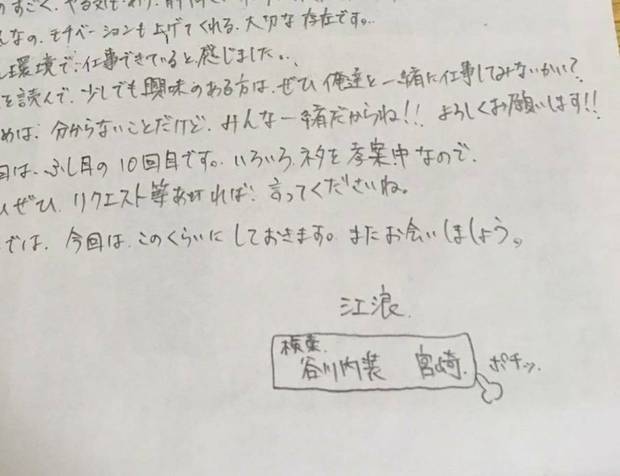 のすごく、やる気も
んなの、モチベーションも上げてくれる、大切な存在です。
環境で、仕事できていると、感じました。
を読んで、少しでも興味のある方は、ぜひ俺達と一緒に仕事してみないかい?
めは、分からないことだけど、みんな一緒だからね!! よろしくお願いします!!
回は、ふし目の10回目です。いろいろ、ネタを考案中なので、
ひぜひ、リクエスト等あれば、言ってくださいね。
では、今回は、このくらいにしておきます。またお会いしましょう。
江浪
検索
谷川内装 宮崎
ポチッ